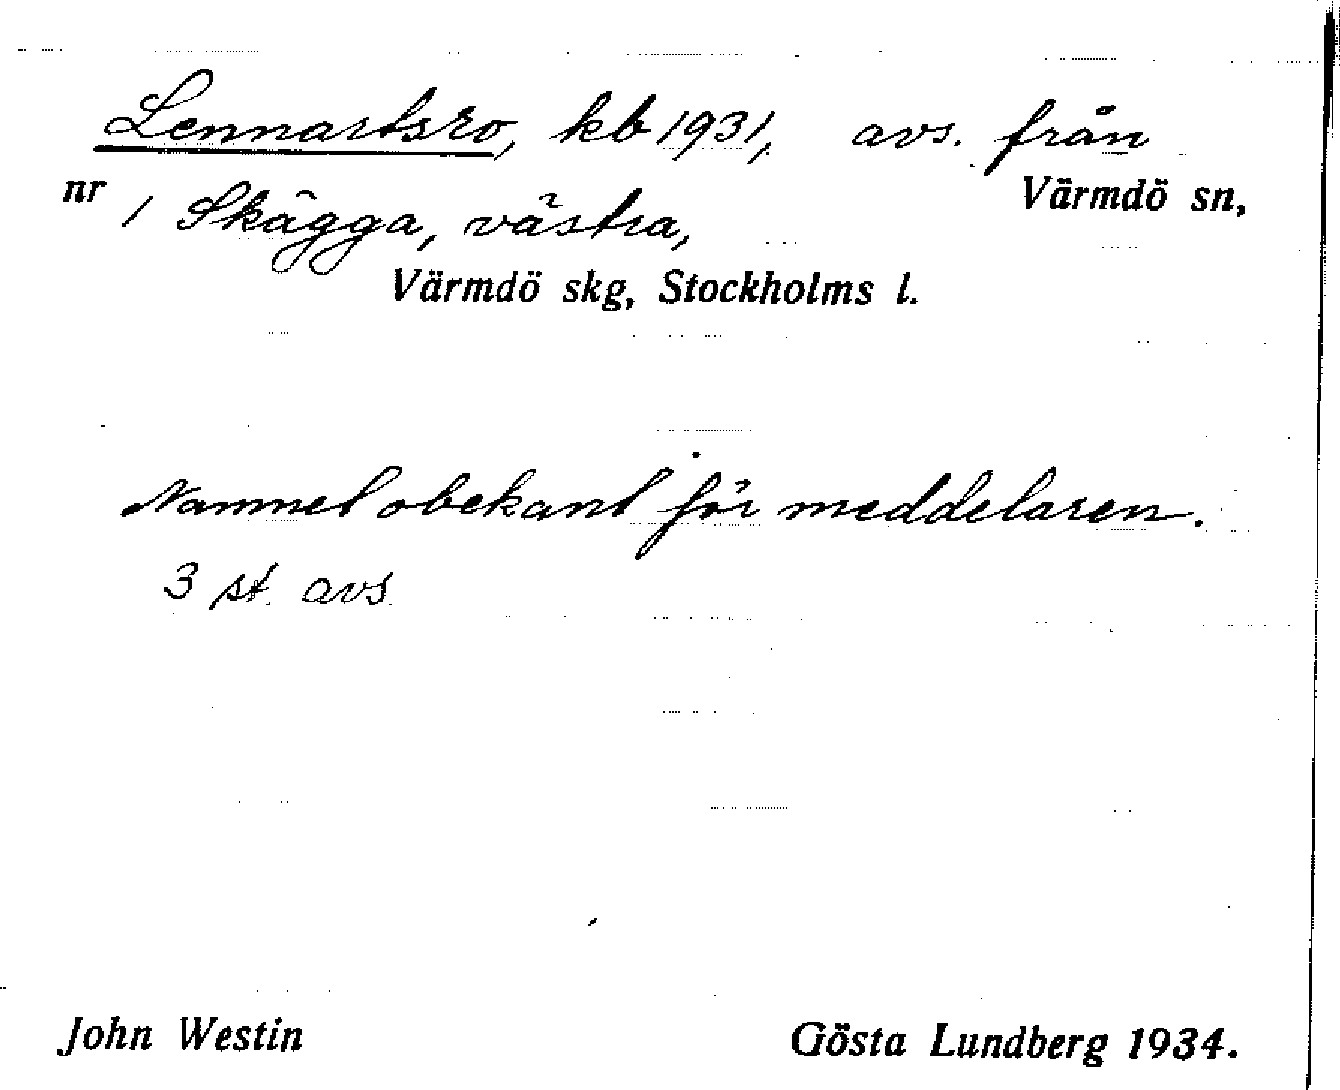 Lennartsro, kb 1931, avs. från
nr 1 Skägga, västra, Värmdö sn,
Värmdö skg, Stockholms l.
Namnet obekant för meddelaren.
3 st. avs.
John Westin Gösta Lundberg 1934.